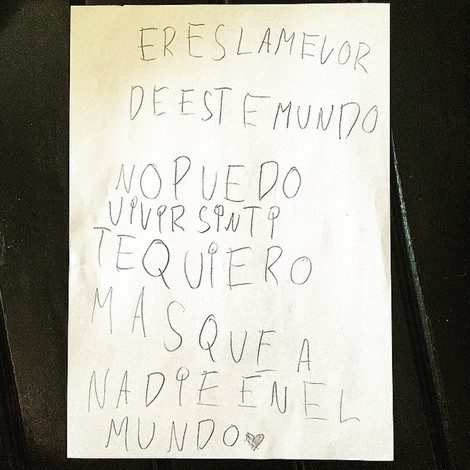 ERES LA MEUOR
DE ESTE MUNDO
NO PUEDO
ViViR SiN Ti
TE QUiERO
MAS QUE A
NADiE EN EL
MUNDO